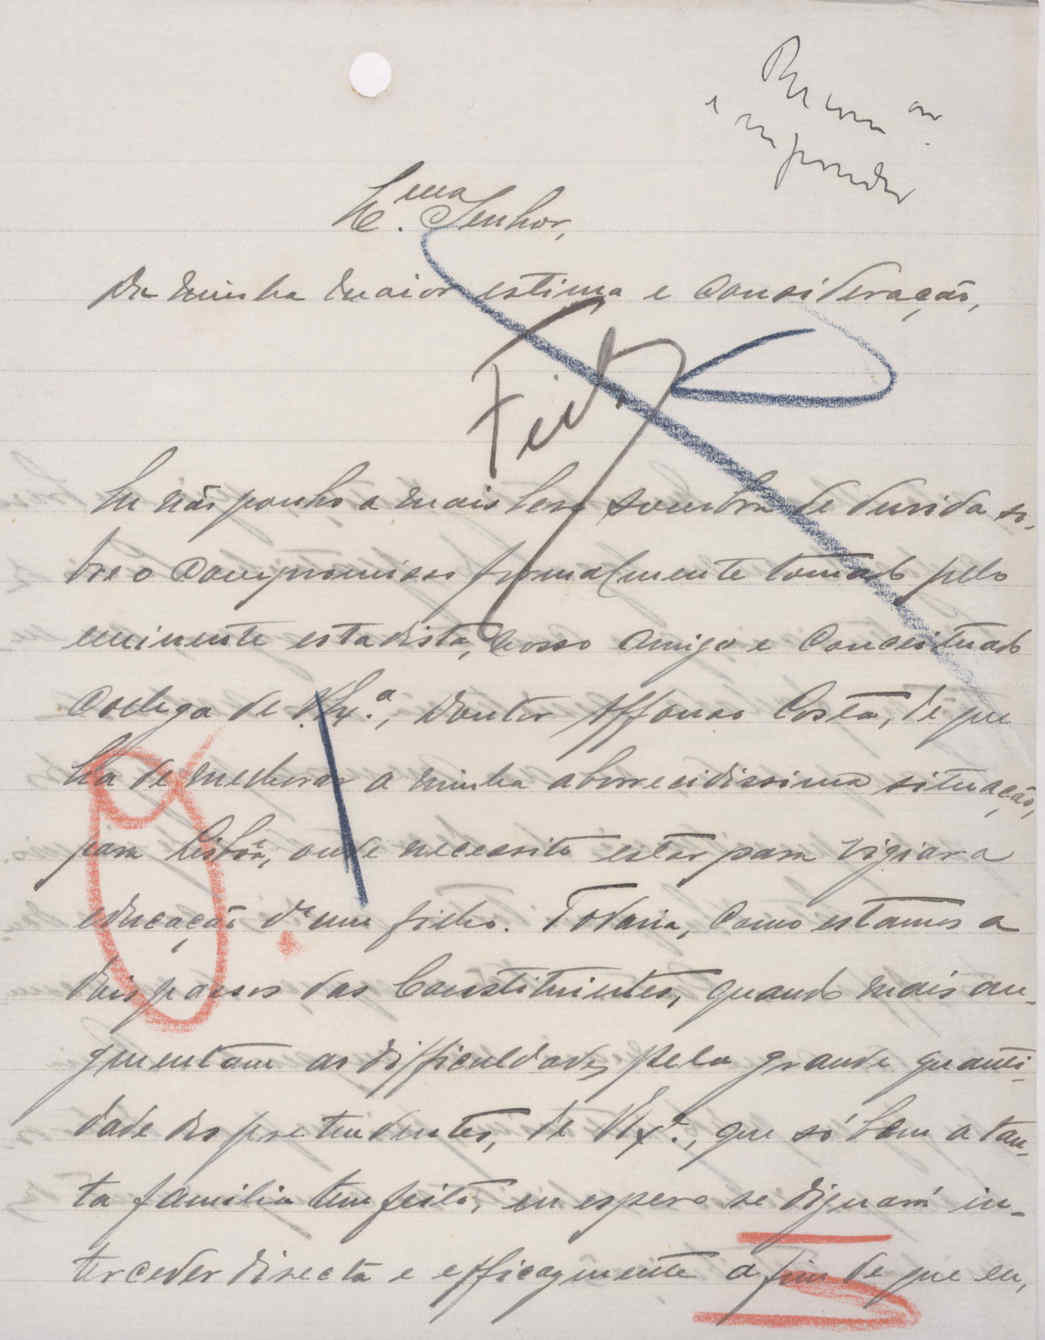 e responder
Ex.mo Senhor,
Da minha maior estima e consideração,
Eu não ponho a mais leve sombra de duvida so-
bre o compromisso formalmente tomado pelo
eminente estadista, nosso amigo e conceituado
collega de V. Ex.ª, doutor Affonso Costa, de que
ha de melhorar a minha aborrecidissima situação,
para Lisbôa, onde necessito estar para vigiar a
educação d'um filho. Todavia, como estamos a
dois passos das Constituintes, quando mais au-
gmentam as difficuldades, pela grande quanti-
dade dos pretendentes, de V. Ex.ª, que só bem a tan-
ta familia tem feito, eu espero se dignará in-
terceder directa e efficazmente a fim de que eu,